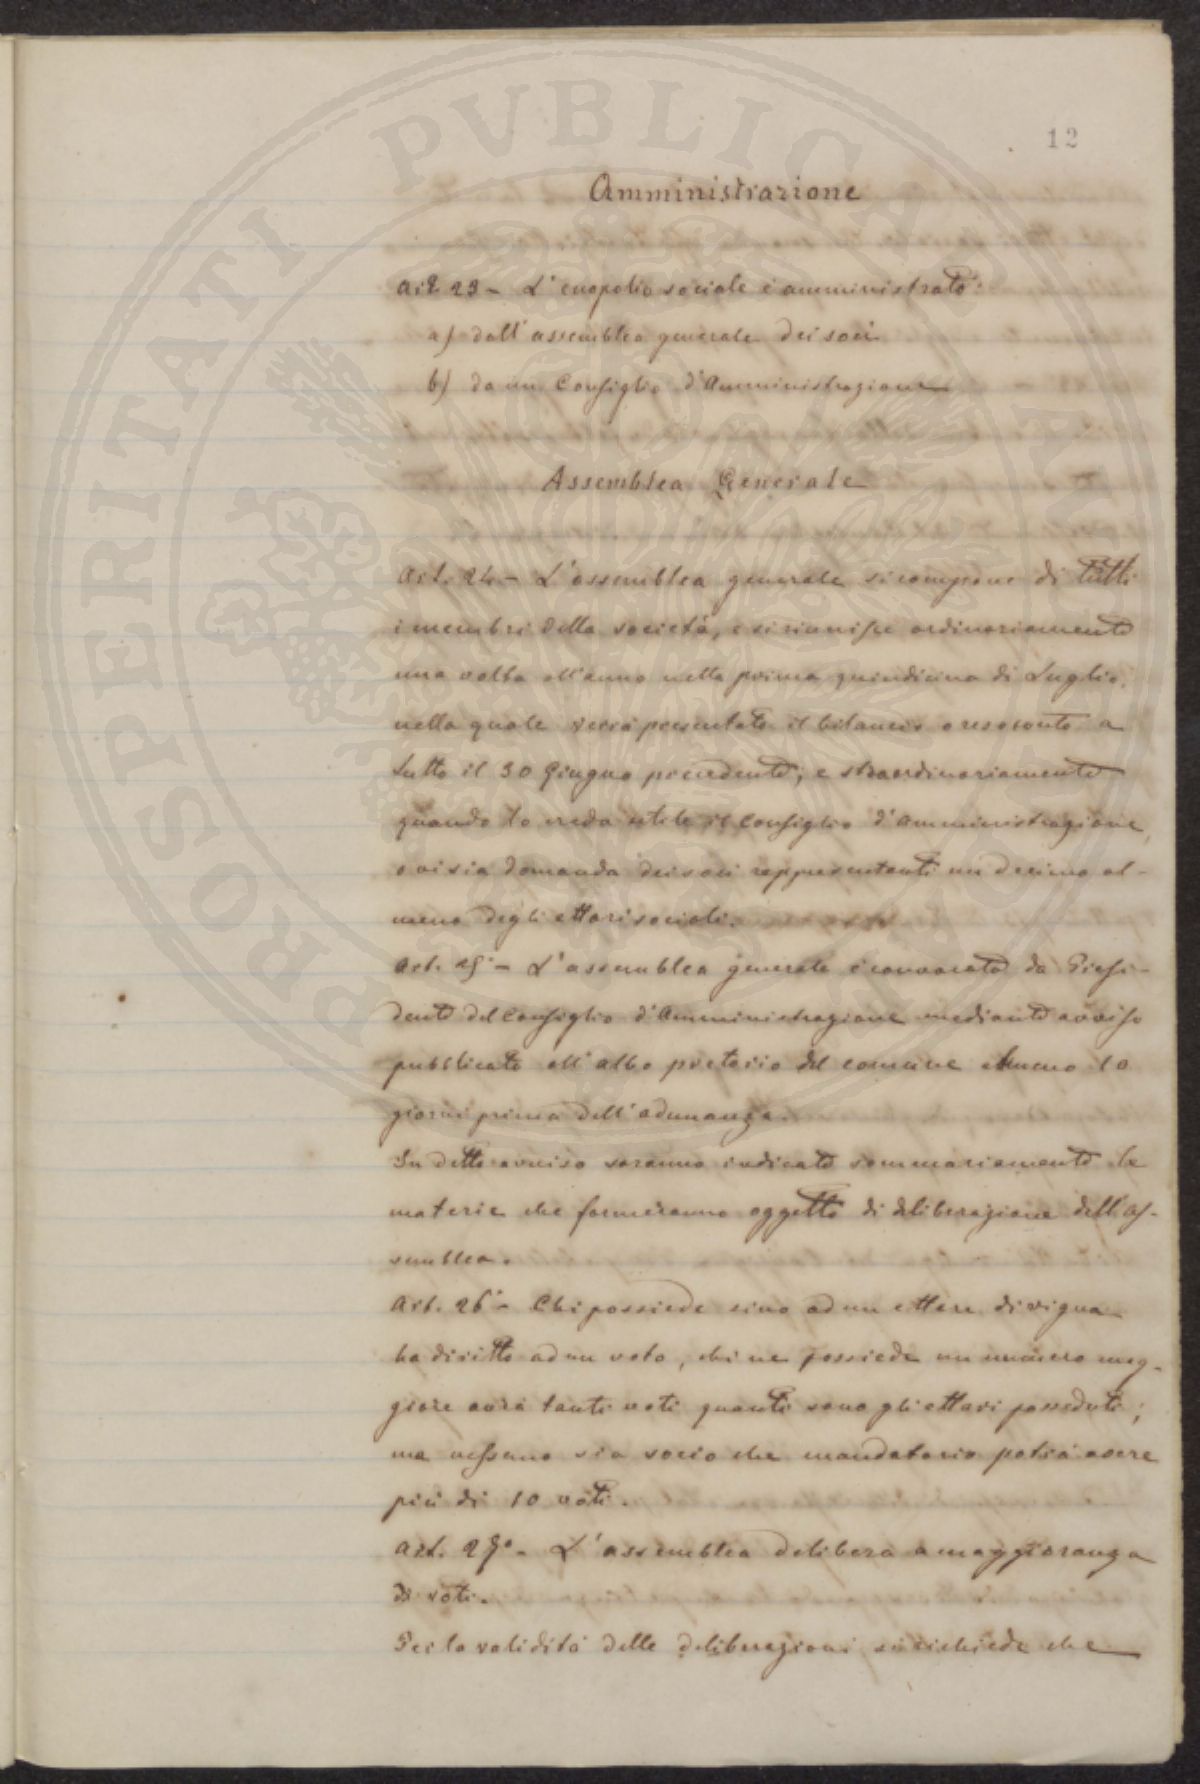 12
Amministrazione
Art. 23 - L'enopolio sociale è amministrato:
a) dall'assemblea generale dei soci
b) da un Consiglio d'Amministrazione
Assemblea Generale
Art. 24 - L'assemblea generale si compone di tutti
i membri della società, e si riunisce ordinariamente
una volta all'anno nella prima quindicina di Luglio,
nella quale verrà presentato il bilancio o resoconto a
tutto il 30 Giugno precedente; e straordinariamente
quando lo creda utile il Consiglio d'Amministrazione,
o vi sia domanda dei soci rappresentanti un decimo al-
meno degli ettari sociali.
Art. 25° - L'assemblea generale è convocata da Presi-
dente del Consiglio d'Amministrazione mediante avviso
pubblicato all'albo pretorio del comune almeno 10
giorni prima dell'adunanza.
In detto avviso saranno indicate sommariamente le
materie che formeranno oggetto di deliberazione dell'as-
semblea.
Art. 26° - Chi possiede sino ad un ettare di vigna
ha diritto ad un voto, chi ne possiede un numero mag-
giore avrà tanti voti quanti sono gli ettari posseduti;
ma nessuno sia socio che mandatario potrà avere
più di 10 voti.
Art. 27° - L'assemblea delibera a maggioranza
di voti.
Per la validità delle deliberazioni si richiede che
PROSPERITATI PUBLICAE AUGENDAE